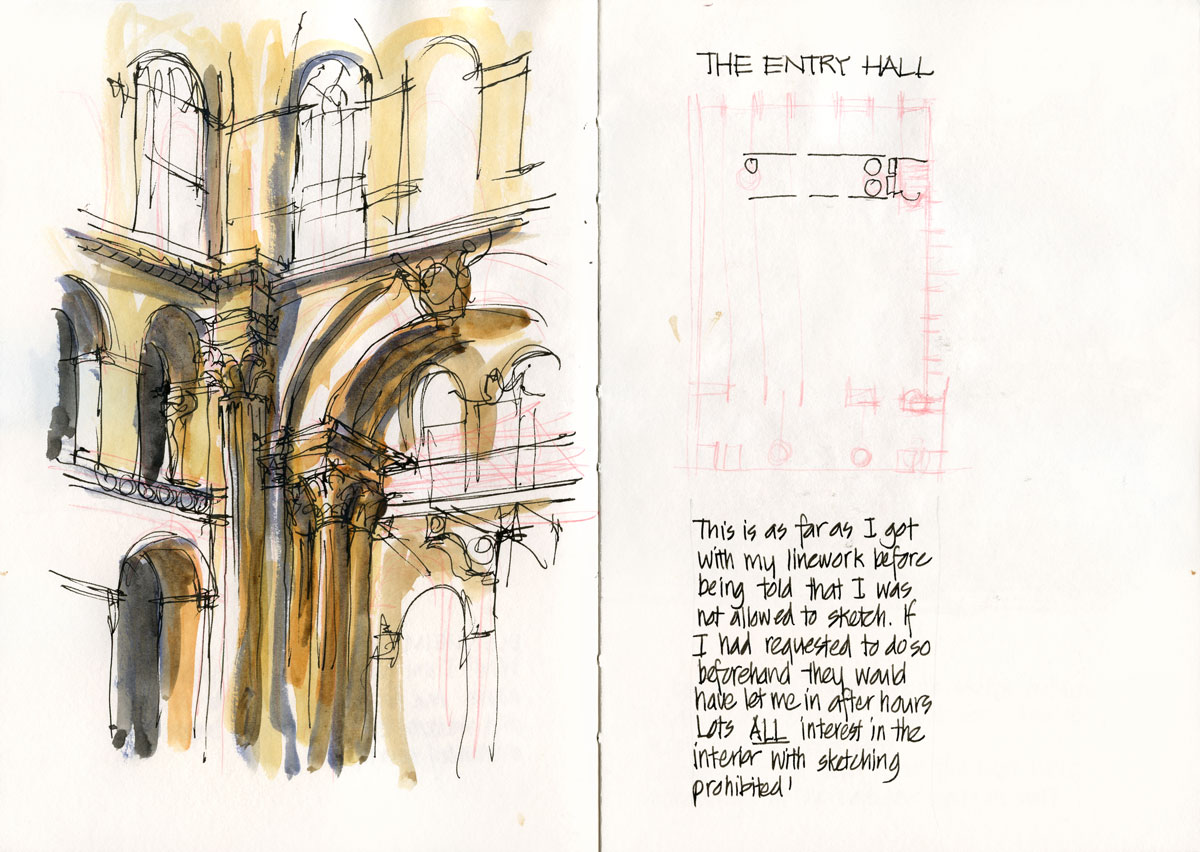 THE ENTRY HALL
This is as far as I got
with my linework before
being told that I was
not allowed to sketch. If
I had requested to do so
beforehand they would
have let me in after hours
Lots ALL interest in the
interior with sketching
prohibited!